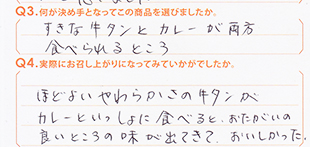 Q3.何が決め手となってこの商品を選びましたか。
すきな牛タンとカレーが両方
食べられるところ
Q4.実際にお召し上がりになってみていかがでしたか。
ほどよいやわらかさの牛タンが
カレーといっしょに食べると、おたがいの
良いところの味が出てきて、おいしかった。